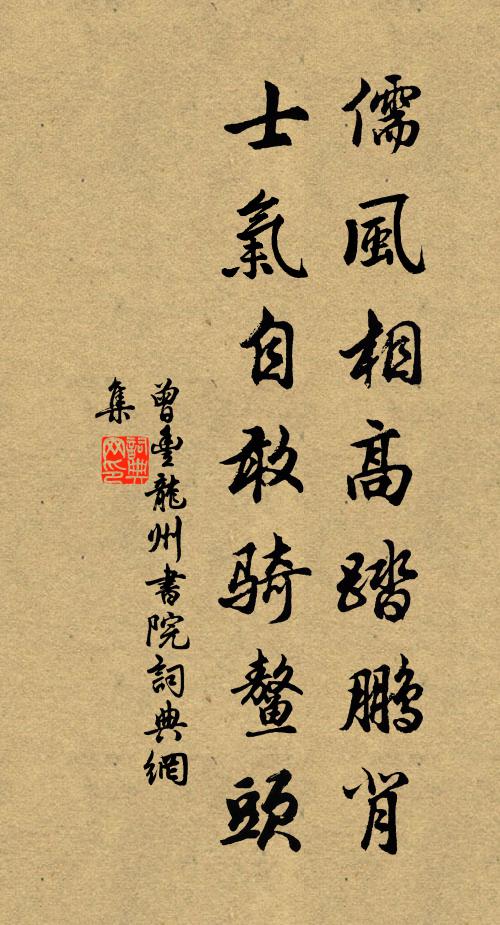 儒風相高踏鵬背
士氣自敢騎鰲頭
曾豐龍州書院詞典網
集
詞典网印